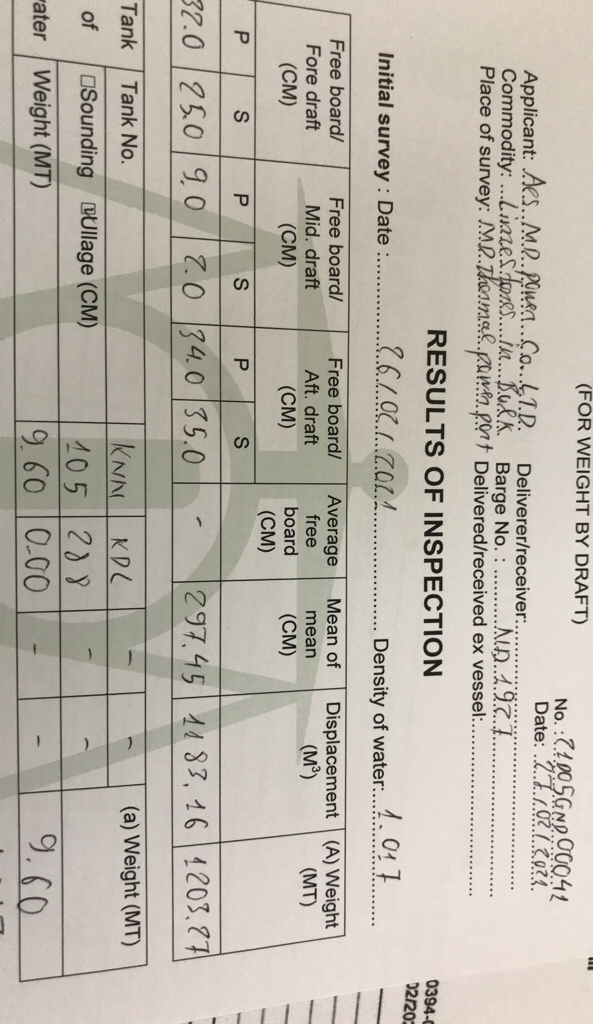 (FOR WEIGHT BY DRAFT)
No.: 21005GND00041
Date: 27/02/2021
Applicant: AES M.D. power Co. LTD.
Deliverer/receiver:
Commodity: Limestones in Bulk
Barge No.: ND 1927
Place of survey: M.D. Thermal power port
Delivered/received ex vessel:
RESULTS OF INSPECTION
Initial survey: Date: 26/02/2021
Density of water: 1.017
Free board/ Fore draft (CM)
Free board/ Mid. draft (CM)
Free board/ Aft. draft (CM)
Average free board (CM)
Mean of mean (CM)
Displacement (M³)
(A) Weight (MT)
P S P S P S
32.0 25.0 9.0 2.0 34.0 35.0 - 297.45 1183.16 1203.27
Tank Tank No. KNM KDL - - (a) Weight (MT)
of □Sounding ☑Ullage (CM) 105 288 - -
water Weight (MT) 9.60 0.00 - - 9.60
0394-
02/202